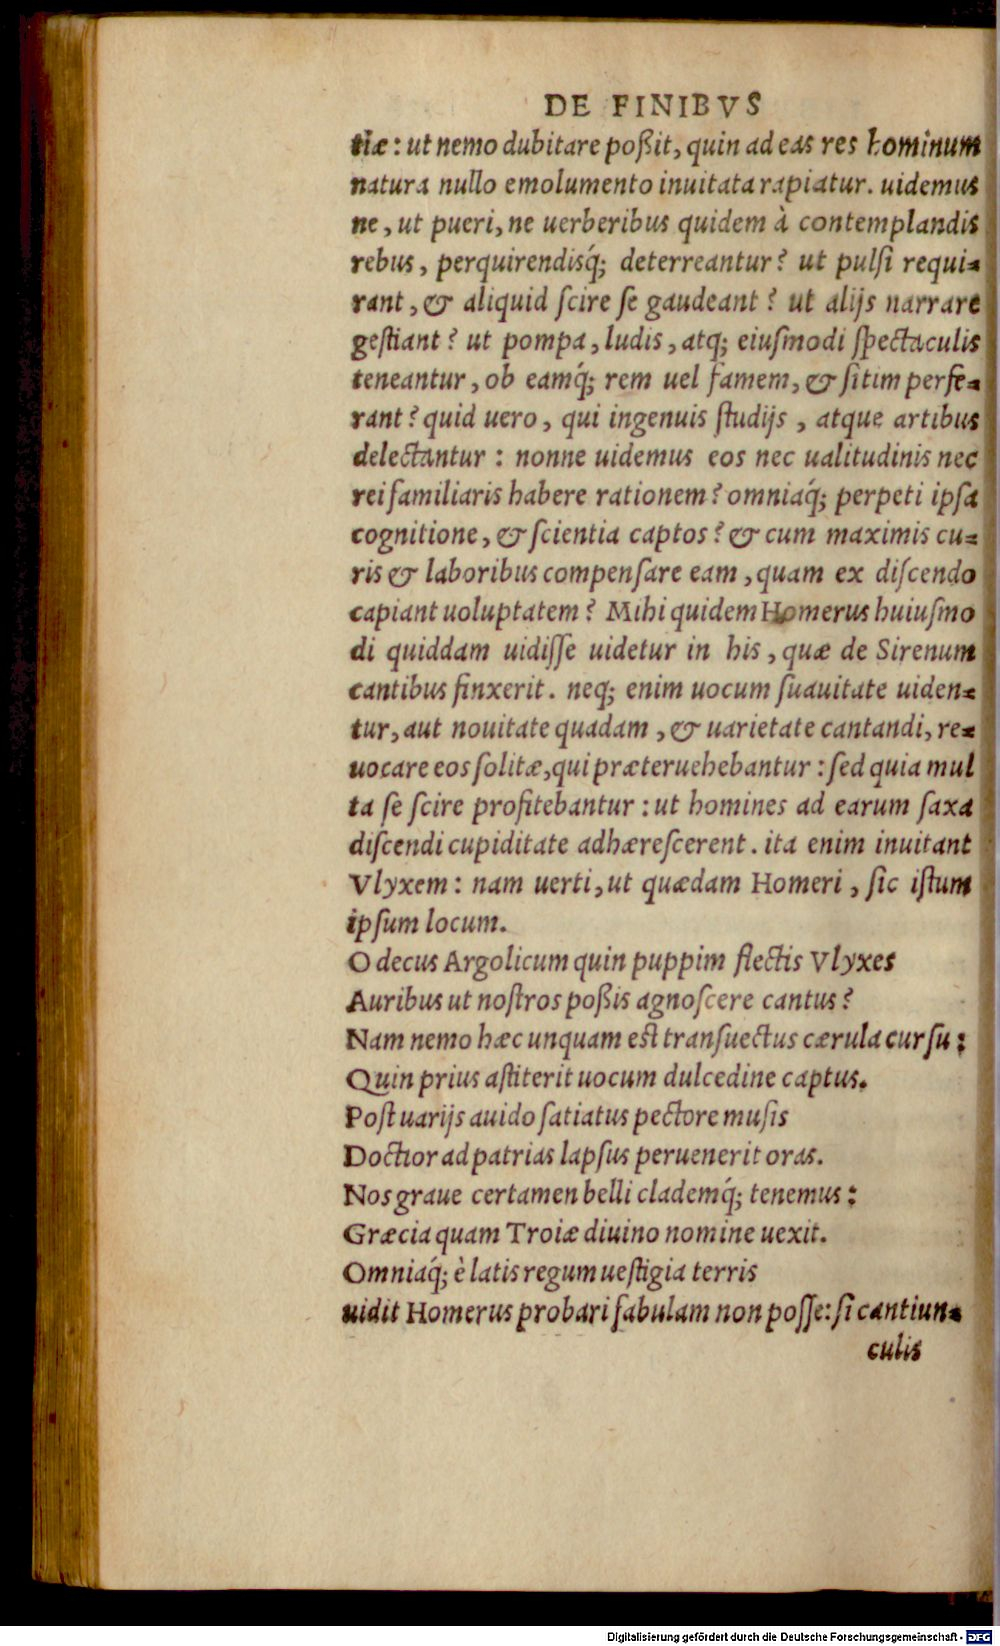 DE FINIBVS
tiæ: ut nemo dubitare poßit, quin ad eas res hominum
natura nullo emolumento inuitata rapiatur. uidemus
ne, ut pueri, ne uerberibus quidem à contemplandis
rebus, perquirendisq́; deterreantur? ut pulſi requi-
rant, & aliquid ſcire ſe gaudeant? ut alijs narrare
geſtiant? ut pompa, ludis, atq; eiuſmodi ſpectaculis
teneantur, ob eamq́; rem uel famem, & ſitim perfe-
rant? quid uero, qui ingenuis ſtudijs, atque artibus
delectantur: nonne uidemus eos nec ualitudinis nec
rei familiaris habere rationem? omniaq́; perpeti ipſa
cognitione, & ſcientia captos? & cum maximis cu-
ris & laboribus compenſare eam, quam ex diſcendo
capiant uoluptatem? Mihi quidem Homerus huiuſmo
di quiddam uidiſſe uidetur in his, quæ de Sirenum
cantibus finxerit. neq; enim uocum ſuauitate uiden-
tur, aut nouitate quadam, & uarietate cantandi, re-
uocare eos ſolitæ, qui præteruehebantur: ſed quia mul
ta ſe ſcire profitebantur: ut homines ad earum ſaxa
diſcendi cupiditate adhæreſcerent. ita enim inuitant
Vlyxem: nam uerti, ut quædam Homeri, ſic iſtum
ipſum locum.
O decus Argolicum quin puppim flectis Vlyxes
Auribus ut noſtros poßis agnoſcere cantus?
Nam nemo hæc unquam est tranſuectus cærula curſu:
Quin prius aſtiterit uocum dulcedine captus.
Poſt uarijs auido ſatiatus pectore muſis
Doctior ad patrias lapſus peruenerit oras.
Nos graue certamen belli clademq́; tenemus:
Græcia quam Troiæ diuino nomine uexit.
Omniaq́; è latis regum ueſtigia terris
uidit Homerus probari fabulam non poſſe: ſi cantiun-
culis
Digitalisierung gefördert durch die Deutsche Forschungsgemeinschaft - DFG